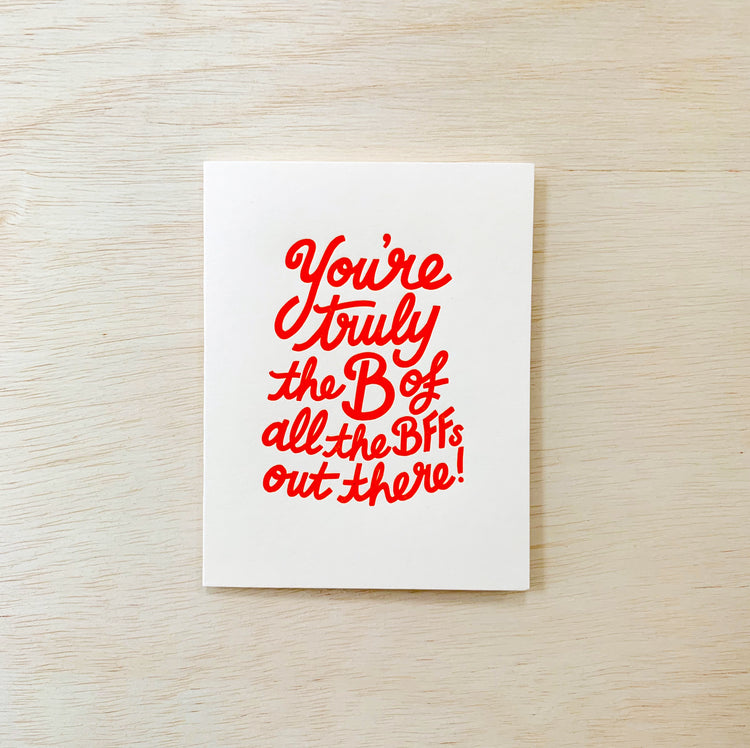 You're
truly
the B of
all the BFFs
out there!